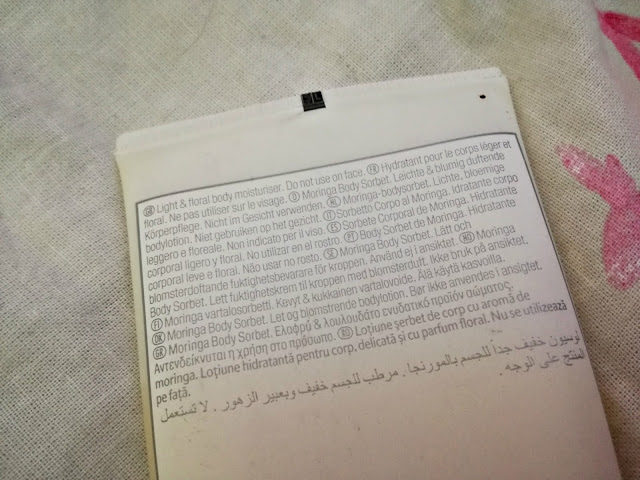 GB Light & floral body moisturiser. Do not use on face. FR Hydratant pour le corps léger et
floral. Ne pas utiliser sur le visage. D Moringa Body Sorbet. Leichte & blumig duftende
Körperpflege. Nicht im Gesicht verwenden. NL Moringa-bodysorbet. Lichte, bloemige
bodylotion. Niet gebruiken op het gezicht. IT Sorbetto Corpo al Moringa. Idratante corpo
leggero e floreale. Non indicato per il viso. ES Sorbete Corporal de Moringa. Hidratante
corporal ligero y floral. No utilizar en el rostro. PT Body Sorbet de Moringa. Hidratante
corporal leve e floral. Não usar no rosto. SE Moringa Body Sorbet. Lätt och
blomsterdoftande fuktighetsbevarare för kroppen. Använd ej i ansiktet. NO Moringa
Body Sorbet. Lett fuktighetskrem til kroppen med blomsterduft. Ikke bruk på ansiktet.
FI Moringa vartalosorbetti. Kevyt & kukkainen vartalovoide. Älä käytä kasvoilla.
DK Moringa Body Sorbet. Let og blomstrende bodylotion. Bør ikke anvendes i ansigtet.
GR Moringa Body Sorbet. Ελαφρύ & λουλουδάτο ενυδατικό προϊόν σώματος.
Αντενδείκνυται η χρήση στο πρόσωπο. RO Loţiune şerbet de corp cu aromă de
moringa. Loţiune hidratantă pentru corp, delicată şi cu parfum floral. Nu se utilizează
pe faţă.
لوسيون خفيف جداً للجسم بالمورنجا . مرطب للجسم خفيف وبعبير الزهور . لا تستعمل
المنتج على الوجه .